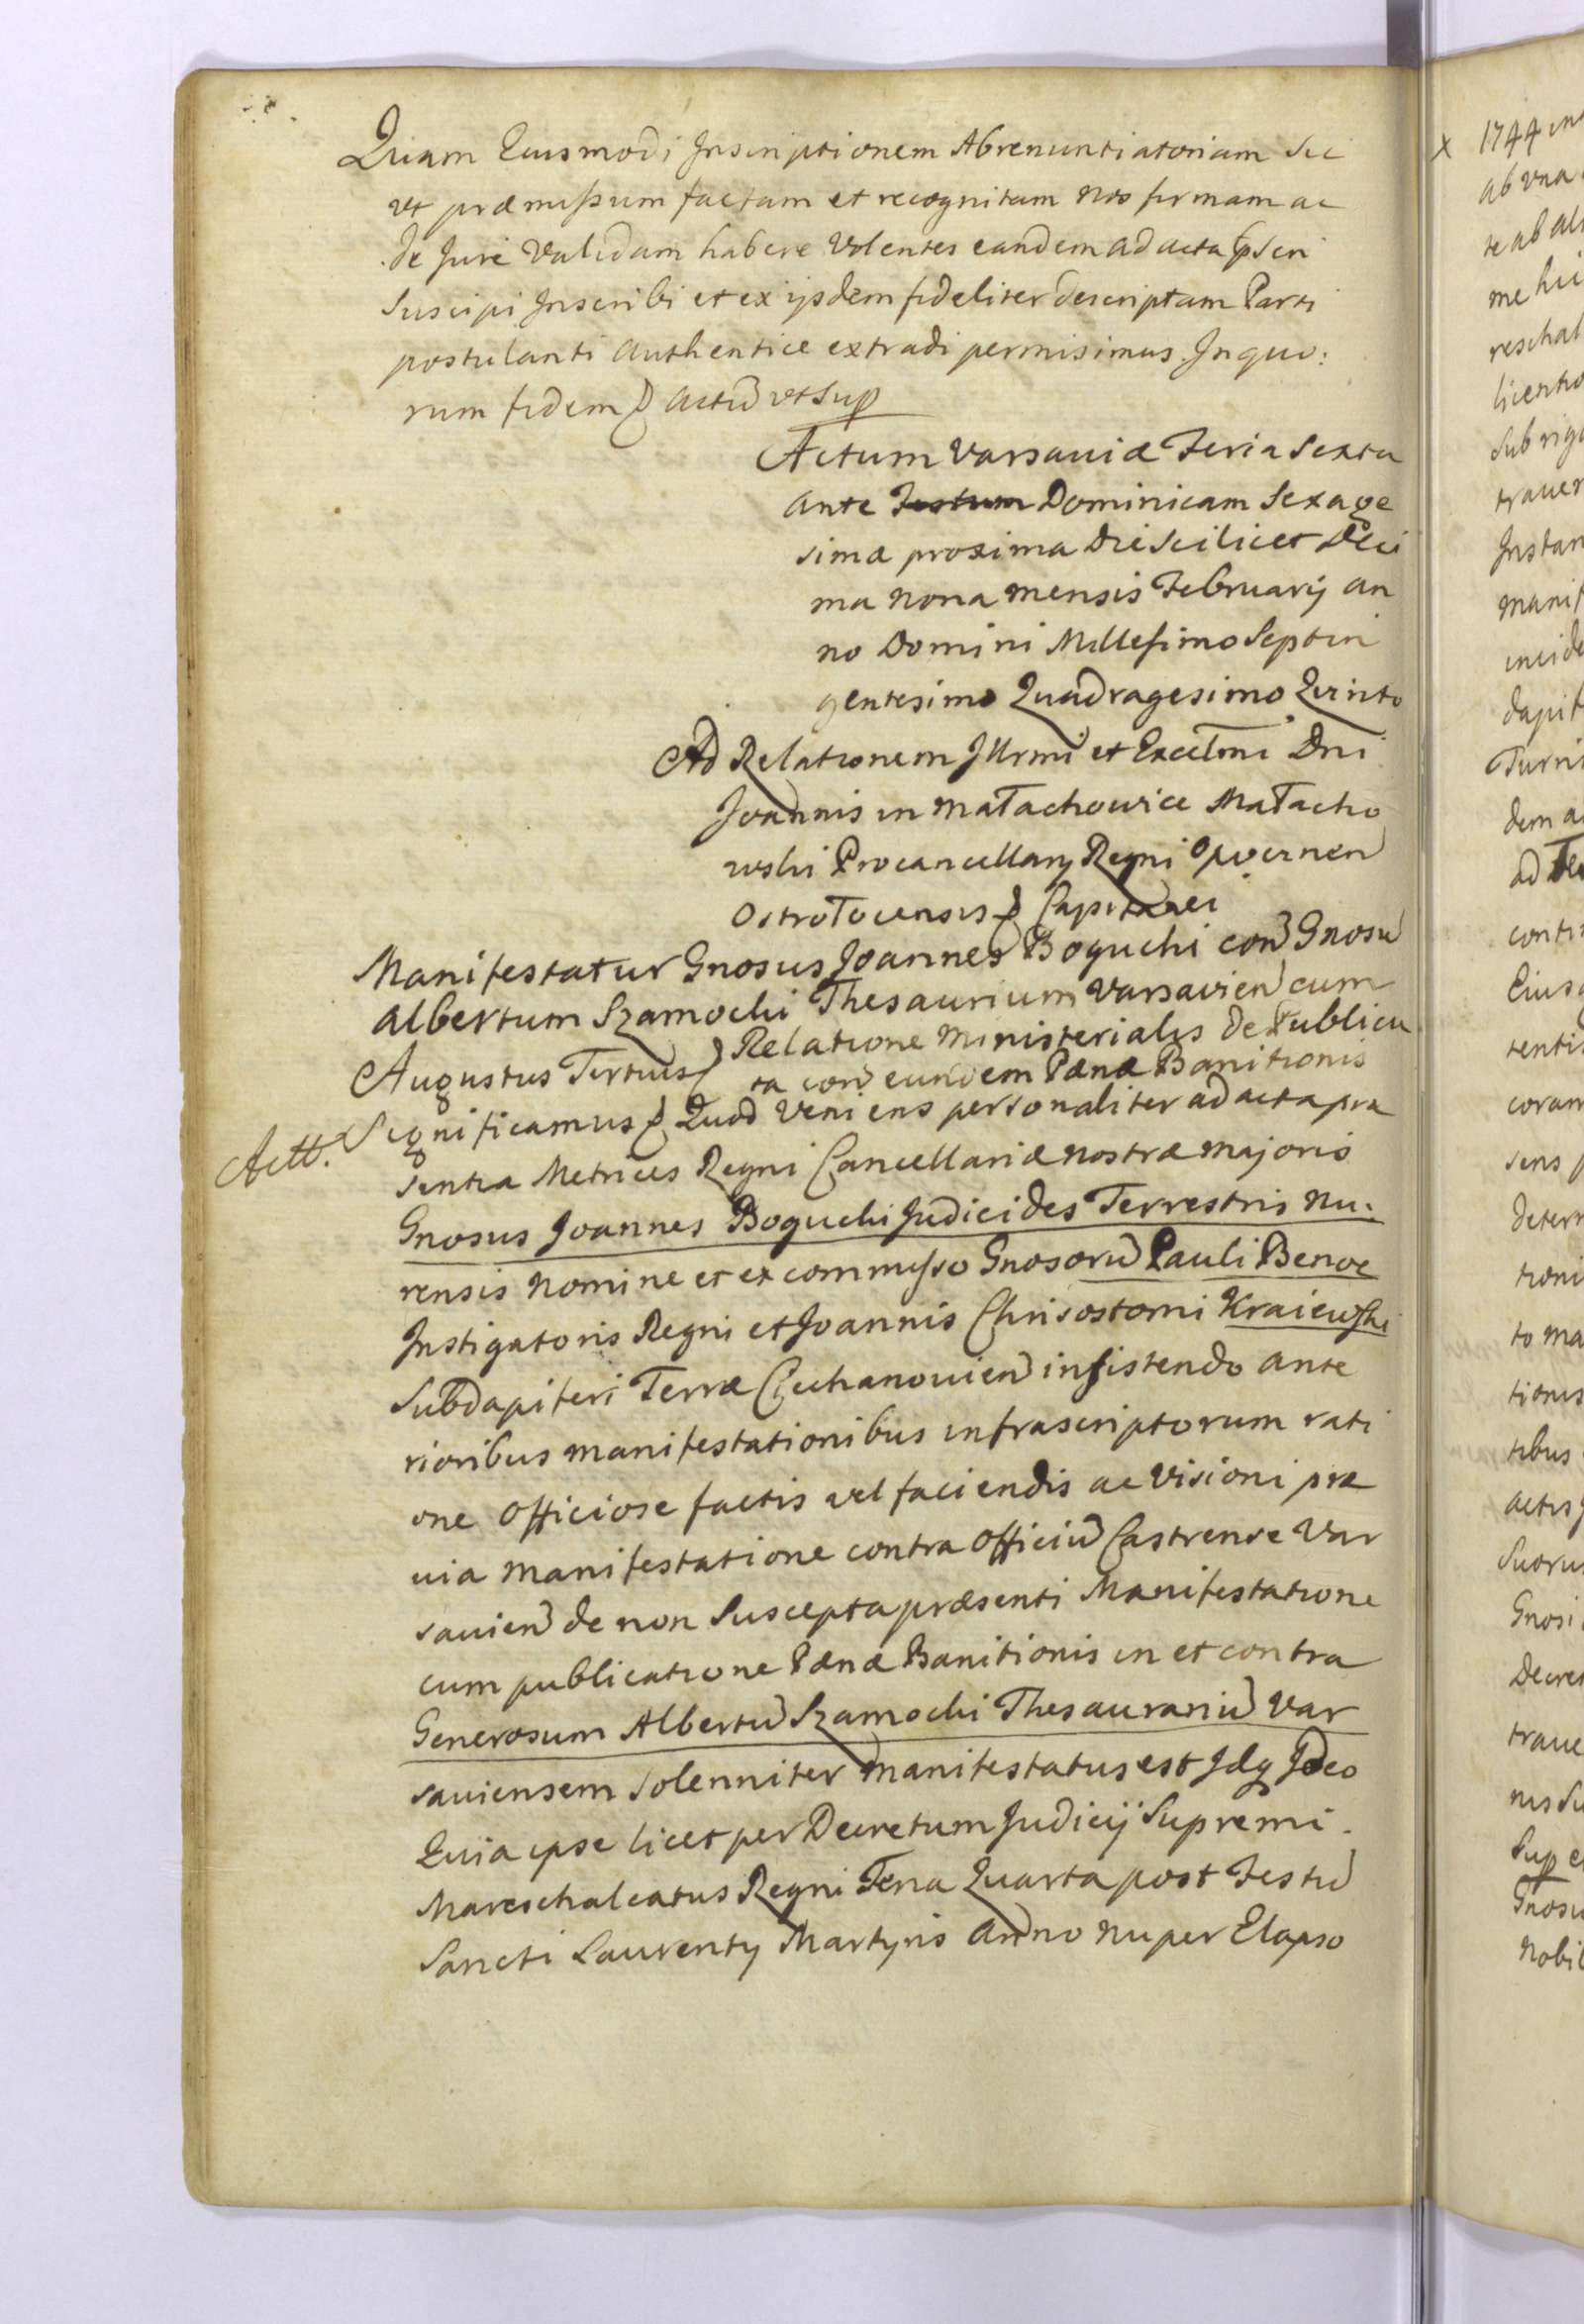 Quam Eiusmodi Inscriptionem Abrenuntiatoriam Sic
ut præmissum factam et recognitam nos firmam ac
de Jure Validam habere Volentes eandem ad acta pnseri
Suscipi Inscribi et ex ijsdem fideliter descriptam Parti
postulanti authentice extradi permisimus. In quo:
rum fidem actũ ut Sup
Actum Varsaviæ Feria Sexta
ante Festum Dominicam Sexage
simæ proxima Die Scilicet Deci
ma nona mensis Februarij an
no Domini Millesimo Septin
gentesimo Quadragesimo Quinto
Ad Relationem Illrmi et Excelmi Dni
Joannis in Małachowice Małacho
wski Procancellarij Regni Opocznen
Ostrołocensis Capitanei
Manifestatur Gnosus Joannes Bogucki con Gnosũ
Albertum Szamocki Thesaurium Varsavien cum
Relatione Ministerialis de Publica
ta con eundem Pænæ Banitionis
Augustus Tertius
Significamus Quod Veniens personaliter ad acta præ
Actt.
sentia Metrices Regni Cancellariæ nostræ majoris
Gnosus Joannes Bogucki Judicides Terrestris Nu:
rensis nomine et ex commisso Gnosorũ Pauli Benoe
Instigatoris Regni et Joannis Chrisostomi Kraiewski
Subdapiferi Terræ Ciechanovien insistendo ante
rioribus manifestationibus infrascriptorum rati
one Officiose factis vel faciendis ac Visioni præ
via manifestatione contra Officiũ Castrense Var
savien de non Suscepta præsenti Manifestatione
cum publicatione Pænæ Banitionis in et contra
Generosum Albertũ Szamocki Thesaurariũ Var
saviensem Solenniter manifestatus est Idq Ideo
Quia ipse licet per Decretum Judicij Supremi
Mareschalcatus Regni Feria Quarta post Festũ
Sancti Laurentij Martyris Anno nuper Elapso
x 1744
ab una
te ab
me
sub
Instan
manif
incide
dapif
dem
ad
contr
Eius
coram
sens
deter
to ma
tionis
tibus
actis
Gnosi
Decre
Sup
Gnosu
Nobil